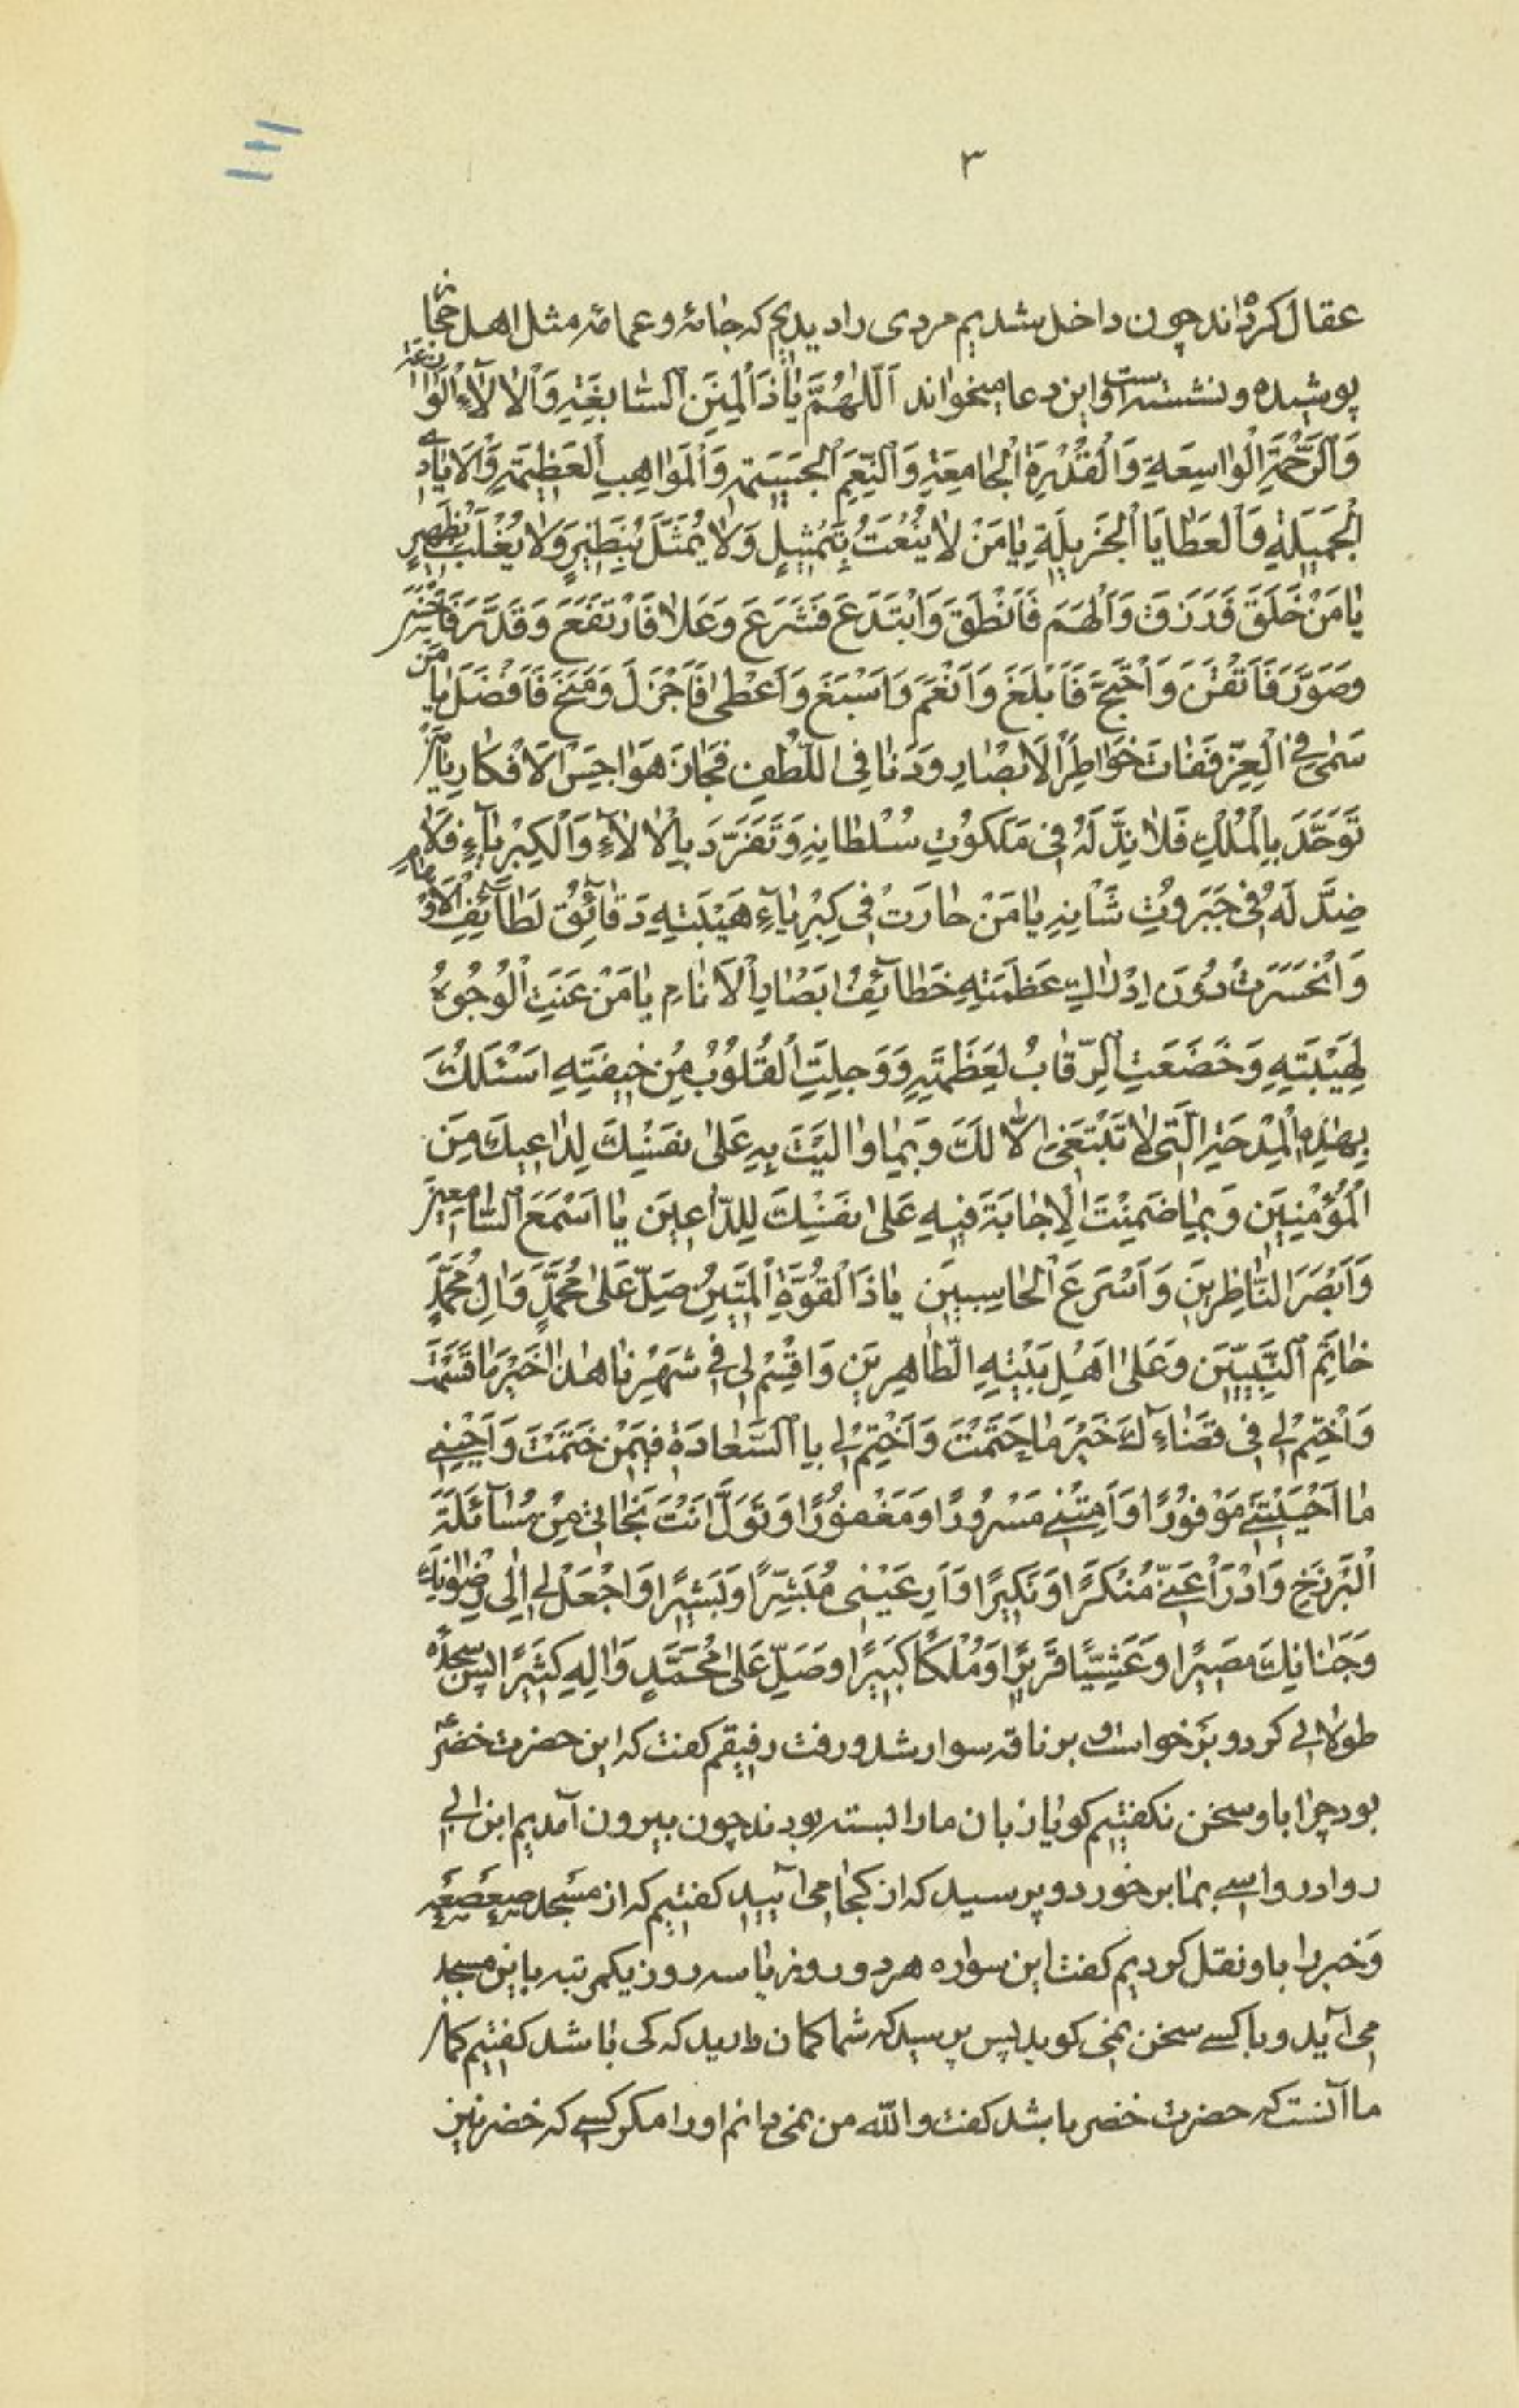 ۳
عقال کرده‌اند چون داخل شدیم مردی را دیدیم که جامهٔ و عمامهٔ مثل اهل حجاز
پوشیده و نشسته است و این دعا میخواند اَللّٰهُمَّ یٰا ذَا الْمِنَنِ السّٰابِغَةِ وَالْاٰلاٰءِ الْوٰازِعَةِ
وَالرَّحْمَةِ الْوٰاسِعَةِ وَالْقُدْرَةِ الْجٰامِعَةِ وَالنِّعَمِ الْجَسیمَةِ وَالْمَوٰاهِبِ الْعَظیمَةِ وَالْاَیٰادِی
الْجَمیلَةِ وَالْعَطٰایَا الْجَزیلَةِ یٰا مَنْ لاٰ یُنْعَتُ بِتَمْثیلٍ وَلاٰ یُمَثَّلُ بِنَظیرٍ وَلاٰ یُغْلَبُ بِظَهیرٍ
یٰا مَنْ خَلَقَ فَرَزَقَ وَاَلْهَمَ فَاَنْطَقَ وَابْتَدَعَ فَشَرَعَ وَعَلاٰ فَارْتَفَعَ وَقَدَّرَ فَاَحْسَنَ
وَصَوَّرَ فَاَتْقَنَ وَاحْتَجَّ فَاَبْلَغَ وَاَنْعَمَ وَاَسْبَغَ وَاَعْطٰی فَاَجْزَلَ وَمَنَحَ فَاَفْضَلَ یٰا مَنْ
سَمٰی فِی الْعِزِّ فَفٰاتَ خَوٰاطِرَ الْاَبْصٰارِ وَدَنٰا فِی اللُّطْفِ فَجٰازَ هَوٰاجِسَ الْاَفْکٰارِ یٰا مَنْ
تَوَحَّدَ بِالْمُلْكِ فَلاٰ نِدَّ لَهُ فی مَلَکُوتِ سُلْطٰانِهِ وَتَفَرَّدَ بِالْاٰلاٰءِ وَالْکِبْرِیٰاءِ فَلاٰ
ضِدَّ لَهُ فی جَبَرُوتِ شَأْنِهِ یٰا مَنْ حٰارَتْ فی کِبْرِیٰاءِ هَیْبَتِهِ دَقٰائِقُ لَطٰائِفِ الْاَوْهٰامِ
وَانْحَسَرَتْ دُونَ اِدْرٰاكِ عَظَمَتِهِ خَطٰائِفُ اَبْصٰارِ الْاَنٰامِ یٰا مَنْ عَنَتِ الْوُجُوهُ
لِهَیْبَتِهِ وَخَضَعَتِ الرِّقٰابُ لِعَظَمَتِهِ وَوَجِلَتِ الْقُلُوبُ مِنْ خیفَتِهِ اَسْئَلُكَ
بِهٰذِهِ الْمِدْحَةِ الَّتی لاٰ تَنْبَغی اِلاّٰ لَكَ وَبِمٰا وَاَیْتَ بِهِ عَلٰی نَفْسِكَ لِدٰاعیكَ مِنَ
الْمُؤْمِنینَ وَبِمٰا ضَمِنْتَ الْاِجٰابَةَ فیهِ عَلٰی نَفْسِكَ لِلدّٰاعینَ یٰا اَسْمَعَ السّٰامِعینَ
وَاَبْصَرَ النّٰاظِرینَ وَاَسْرَعَ الْحٰاسِبینَ یٰا ذَا الْقُوَّةِ الْمَتینِ صَلِّ عَلٰی مُحَمَّدٍ وَاٰلِ مُحَمَّدٍ
خٰاتَمِ النَّبِیّینَ وَعَلٰی اَهْلِ بَیْتِهِ الطّٰاهِرینَ وَاقْسِمْ لی فی شَهْرِنٰا هٰذٰا خَیْرَ مٰا قَسَمْتَ
وَاحْتِمْ لی فی قَضٰاءِكَ خَیْرَ مٰا حَتَمْتَ وَاخْتِمْ لی بِالسَّعٰادَةِ فیمَنْ خَتَمْتَ وَاَحْیِنی
مٰا اَحْیَیْتَنی مَوْفُورًا وَاَمِتْنی مَسْرُورًا وَمَغْفُورًا وَتَوَلَّ اَنْتَ نَجٰاتی مِنْ مُسٰائَلَةِ
الْبَرْزَخِ وَادْرَأْ عَنّی مُنْکَرًا وَنَکیرًا وَاَرِ عَیْنی مُبَشِّرًا وَبَشیرًا وَاجْعَلْ لی اِلٰی رِضْوٰانِكَ
وَجَنٰانِكَ مَصیرًا وَعَیْشًا قَریرًا وَمُلْکًا کَبیرًا وَصَلِّ عَلٰی مُحَمَّدٍ وَاٰلِهِ کَثیرًا پس سجدهٔ
طولانی کرد و برخواست و بر ناقه سوار شد و رفت رفیقم کفت که این حضرت خضرؑ
بود چرا با او سخن نکفتیم کویا زبان ما را بسته بودند چون بیرون آمدیم ابن ابی
رواد رواسی بما برخورد و پرسید که از کجا می‌آیید کفتیم که از مسجد صعصعه
و خبر را باو نقل کردیم کفت این سواره هر دو روز یا سه روز یکمرتبه باین مسجد
می‌آید و با کسی سخن نمی کوید پس پرسید که شما کمان دارید که کی باشد کفتیم کمان
ما آنست که حضرت خضر باشد کفت والله من نمی دانم او را مکر کسی که خضر نیز